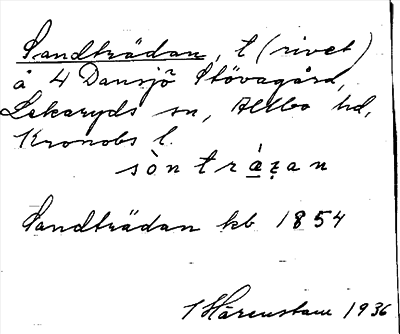 Sandträdan, t (rivet)
å 4 Dansjö Stövagård,
Lekaryds sn, Allbo hd,
Kronobs l.
sòntrázan
Sandträdan kb 1854
Härenstam 1936